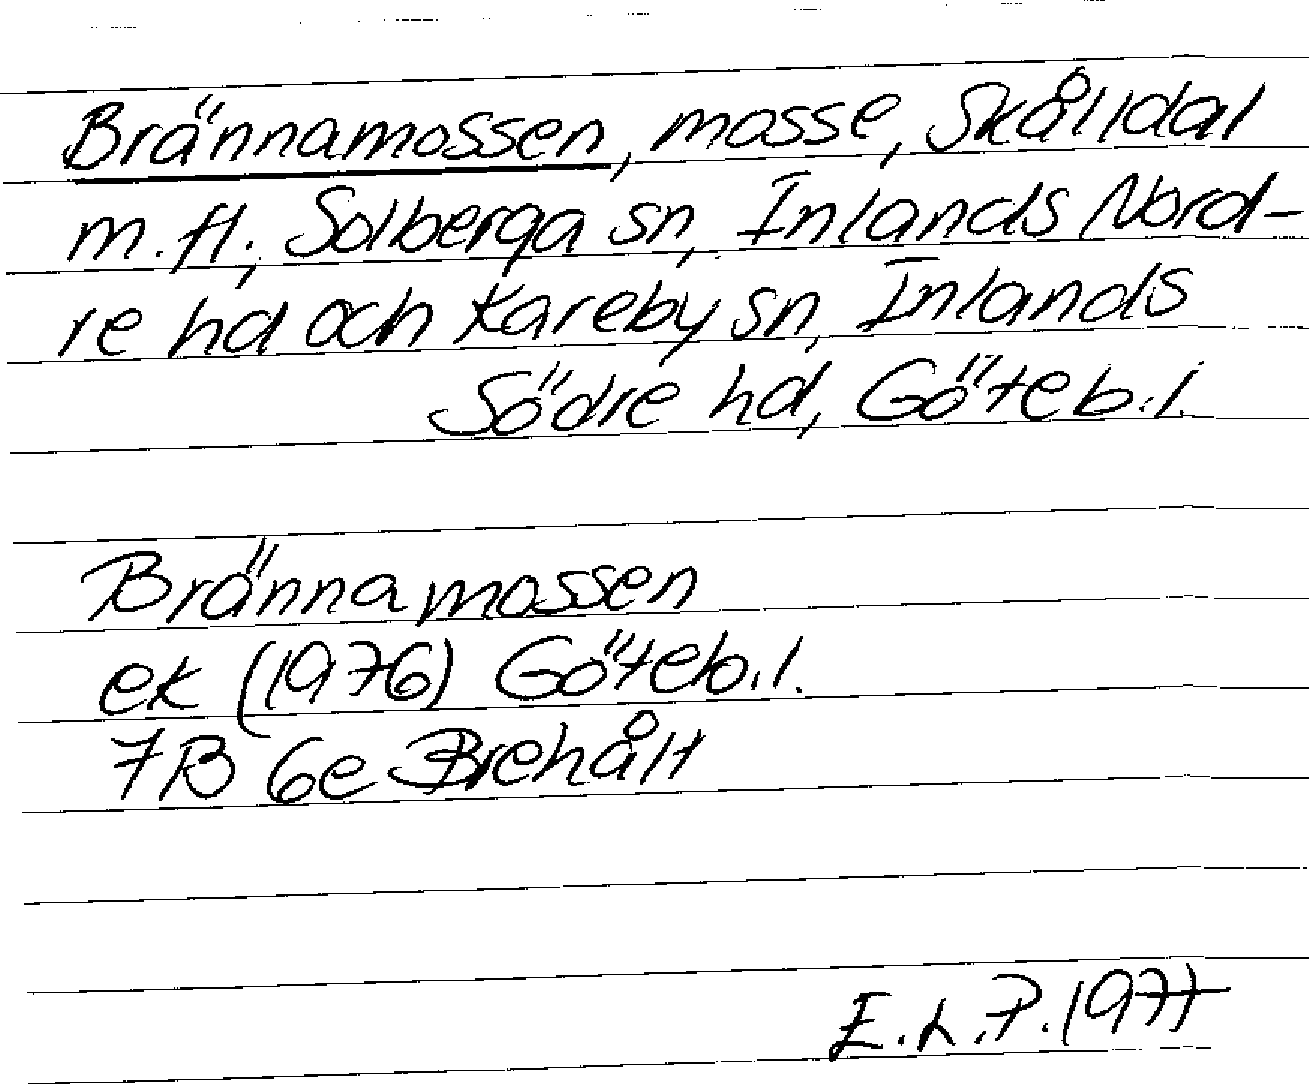 Brännamossen, mosse, Skålldal
m.fl., Solberga sn, Inlands Nord-
re hd och Kareby sn, Inlands
Södre hd, Göteb.l.
Brännamossen
ek (1976) Göteb.l.
7B 6e Brehålt
E.L.P. 1977